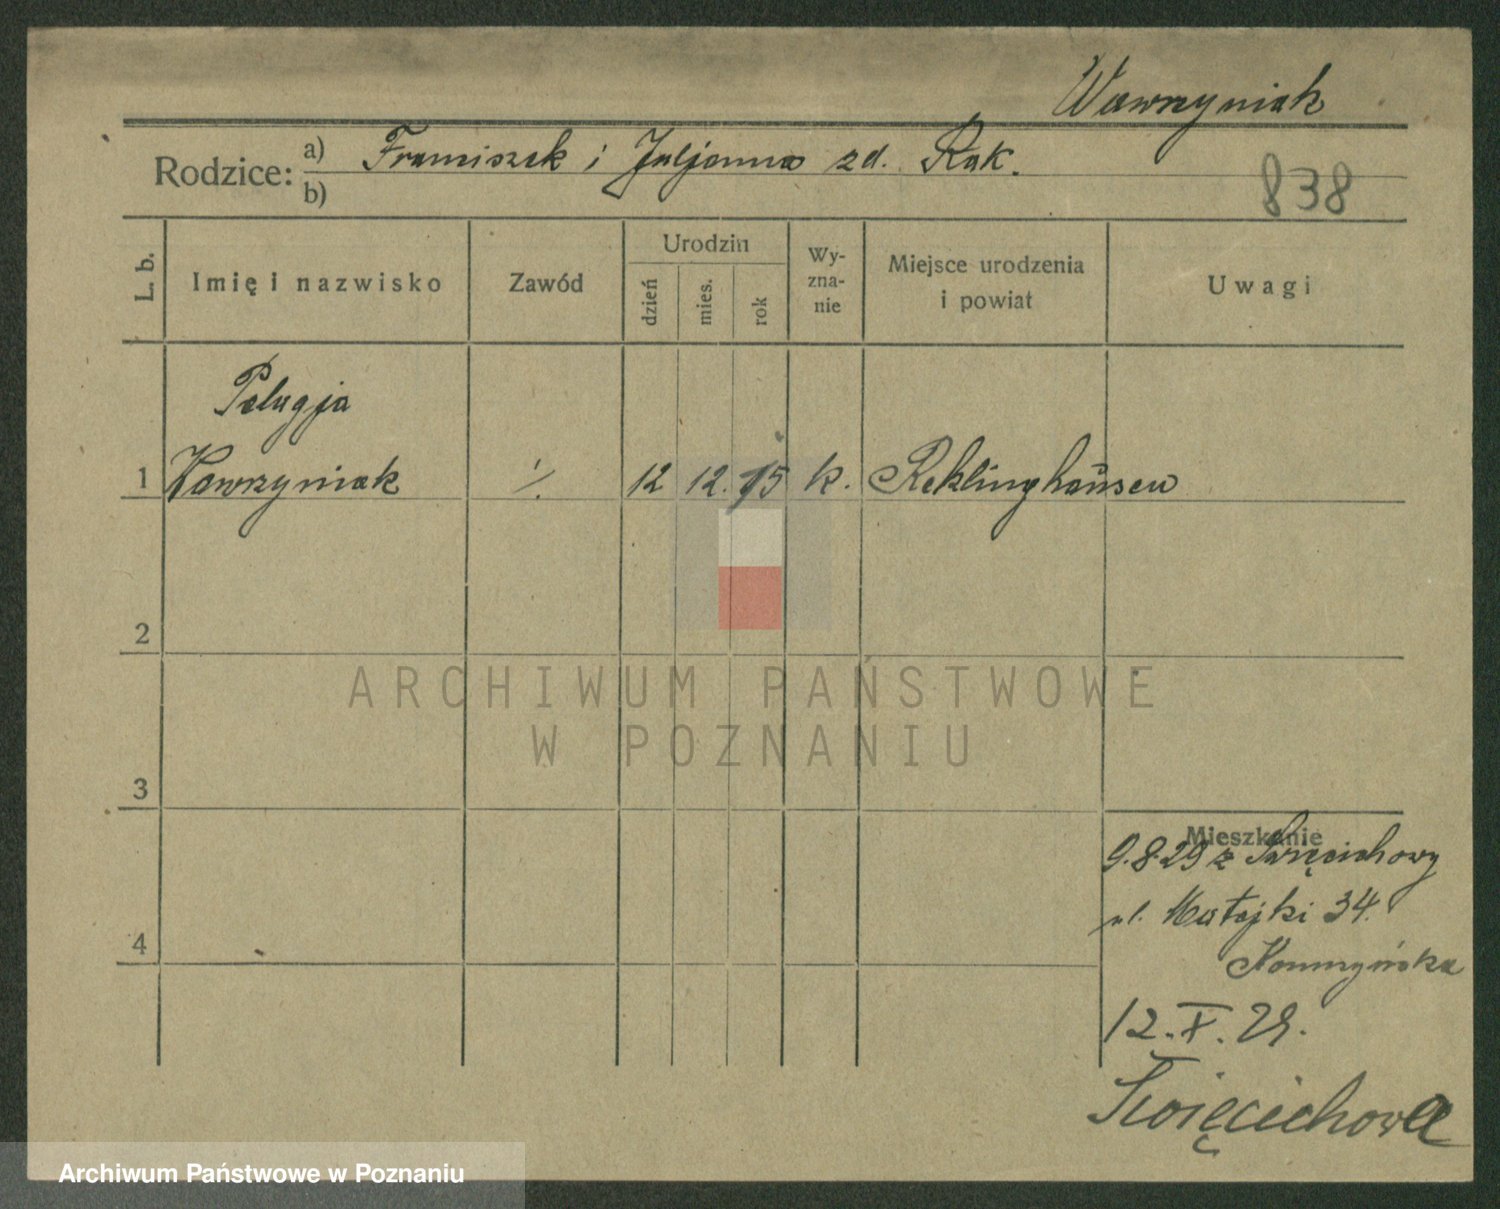 Wawrzyniak
Rodzice: a) Franciszek i Juljanna zd. Rak.
b)
838
L. b.
Imię i nazwisko
Zawód
Urodzin
dzień
mies.
rok
Wy-
zna-
nie
Miejsce urodzenia
i powiat
Uwagi
Pelagja
1 Wawrzyniak ·/. 12 12. 15 k. Reklinghausen
2
3
4
Mieszkanie
9.8.29 z Święcichowy
ul. Matejki 34.
12. X. 29.
Święcichowa
ARCHIWUM PAŃSTWOWE
W POZNANIU
Archiwum Państwowe w Poznaniu